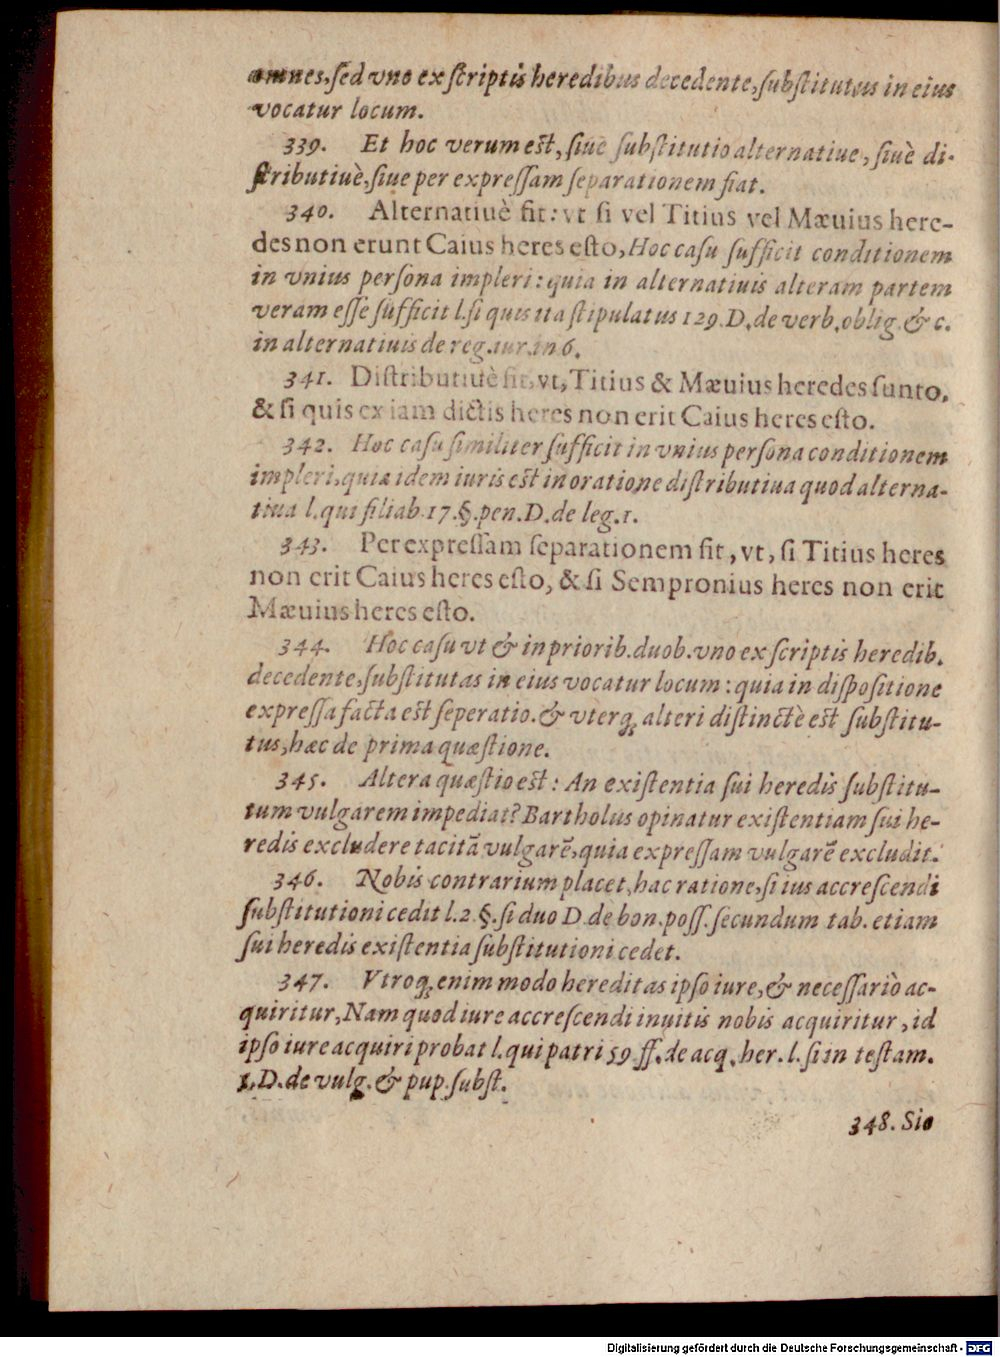 omnes, sed vno ex scriptis heredibus decedente, substitutus in eius
vocatur locum.
339. Et hoc verum est, siuè substitutio alternatiue, siuè di-
stributiuè, siue per expressam separationem fiat.
340. Alternatiuè fit: vt si vel Titius vel Mæuius here-
des non erunt Caius heres esto, Hoc casu sufficit conditionem
in vnius persona impleri: quia in alternatiuis alteram partem
veram esse sufficit l. si quis ita stipulatus 129. D. de verb. oblig. & c.
in alternatiuis de reg. iur. in 6.
341. Distributiuè fit, vt, Titius & Mæuius heredes sunto,
& si quis ex iam dictis heres non erit Caius heres esto.
342. Hoc casu similiter sufficit in vnius persona conditionem
impleri, quia idem iuris est in oratione distributiua quod alterna-
tiua l. qui filiab. 17. §. pen. D. de leg. 1.
343. Per expressam separationem fit, vt, si Titius heres
non erit Caius heres esto, & si Sempronius heres non erit
Mæuius heres esto.
344. Hoc casu vt & in priorib. duob. vno ex scriptis heredib.
decedente, substitutas in eius vocatur locum: quia in dispositione
expressa facta est seperatio. & vterq; alteri distinctè est substitu-
tus, hæc de prima quæstione.
345. Altera quæstio est: An existentia sui heredis substitu-
tum vulgarem impediat? Bartholus opinatur existentiam sui he-
redis excludere tacitā vulgarē, quia expressam vulgarē excludit.
346. Nobis contrarium placet, hac ratione, si ius accrescendi
substitutioni cedit l. 2. §. si duo D. de bon. poss. secundum tab. etiam
sui heredis existentia substitutioni cedet.
347. Vtroq; enim modo hereditas ipso iure, & necessariò ac-
quiritur, Nam quod iure accrescendi inuitis nobis acquiritur, id
ipso iure acquiri probat l. qui patri 59. ff. de acq. her. l. si in testam.
1. D. de vulg. & pup. subst.
348. Sio
Digitalisierung gefördert durch die Deutsche Forschungsgemeinschaft - DFG